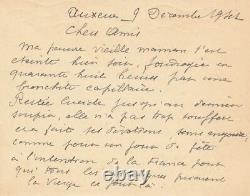 Auxerre 9 Décembre 1941
Chers Amis
Ma pauvre vieille maman s'est
éteinte hier soir, foudroyée en
quarante huit heures par une
bronchite capillaire.
Restée lucide jusqu'au dernier
soupir, elle n'a pas trop souffert
et a fait ses dévotions, sans
comme pour un jour de fête
à l'intention de la France pour
qui tous les prièrent
la Vierge ce jour là